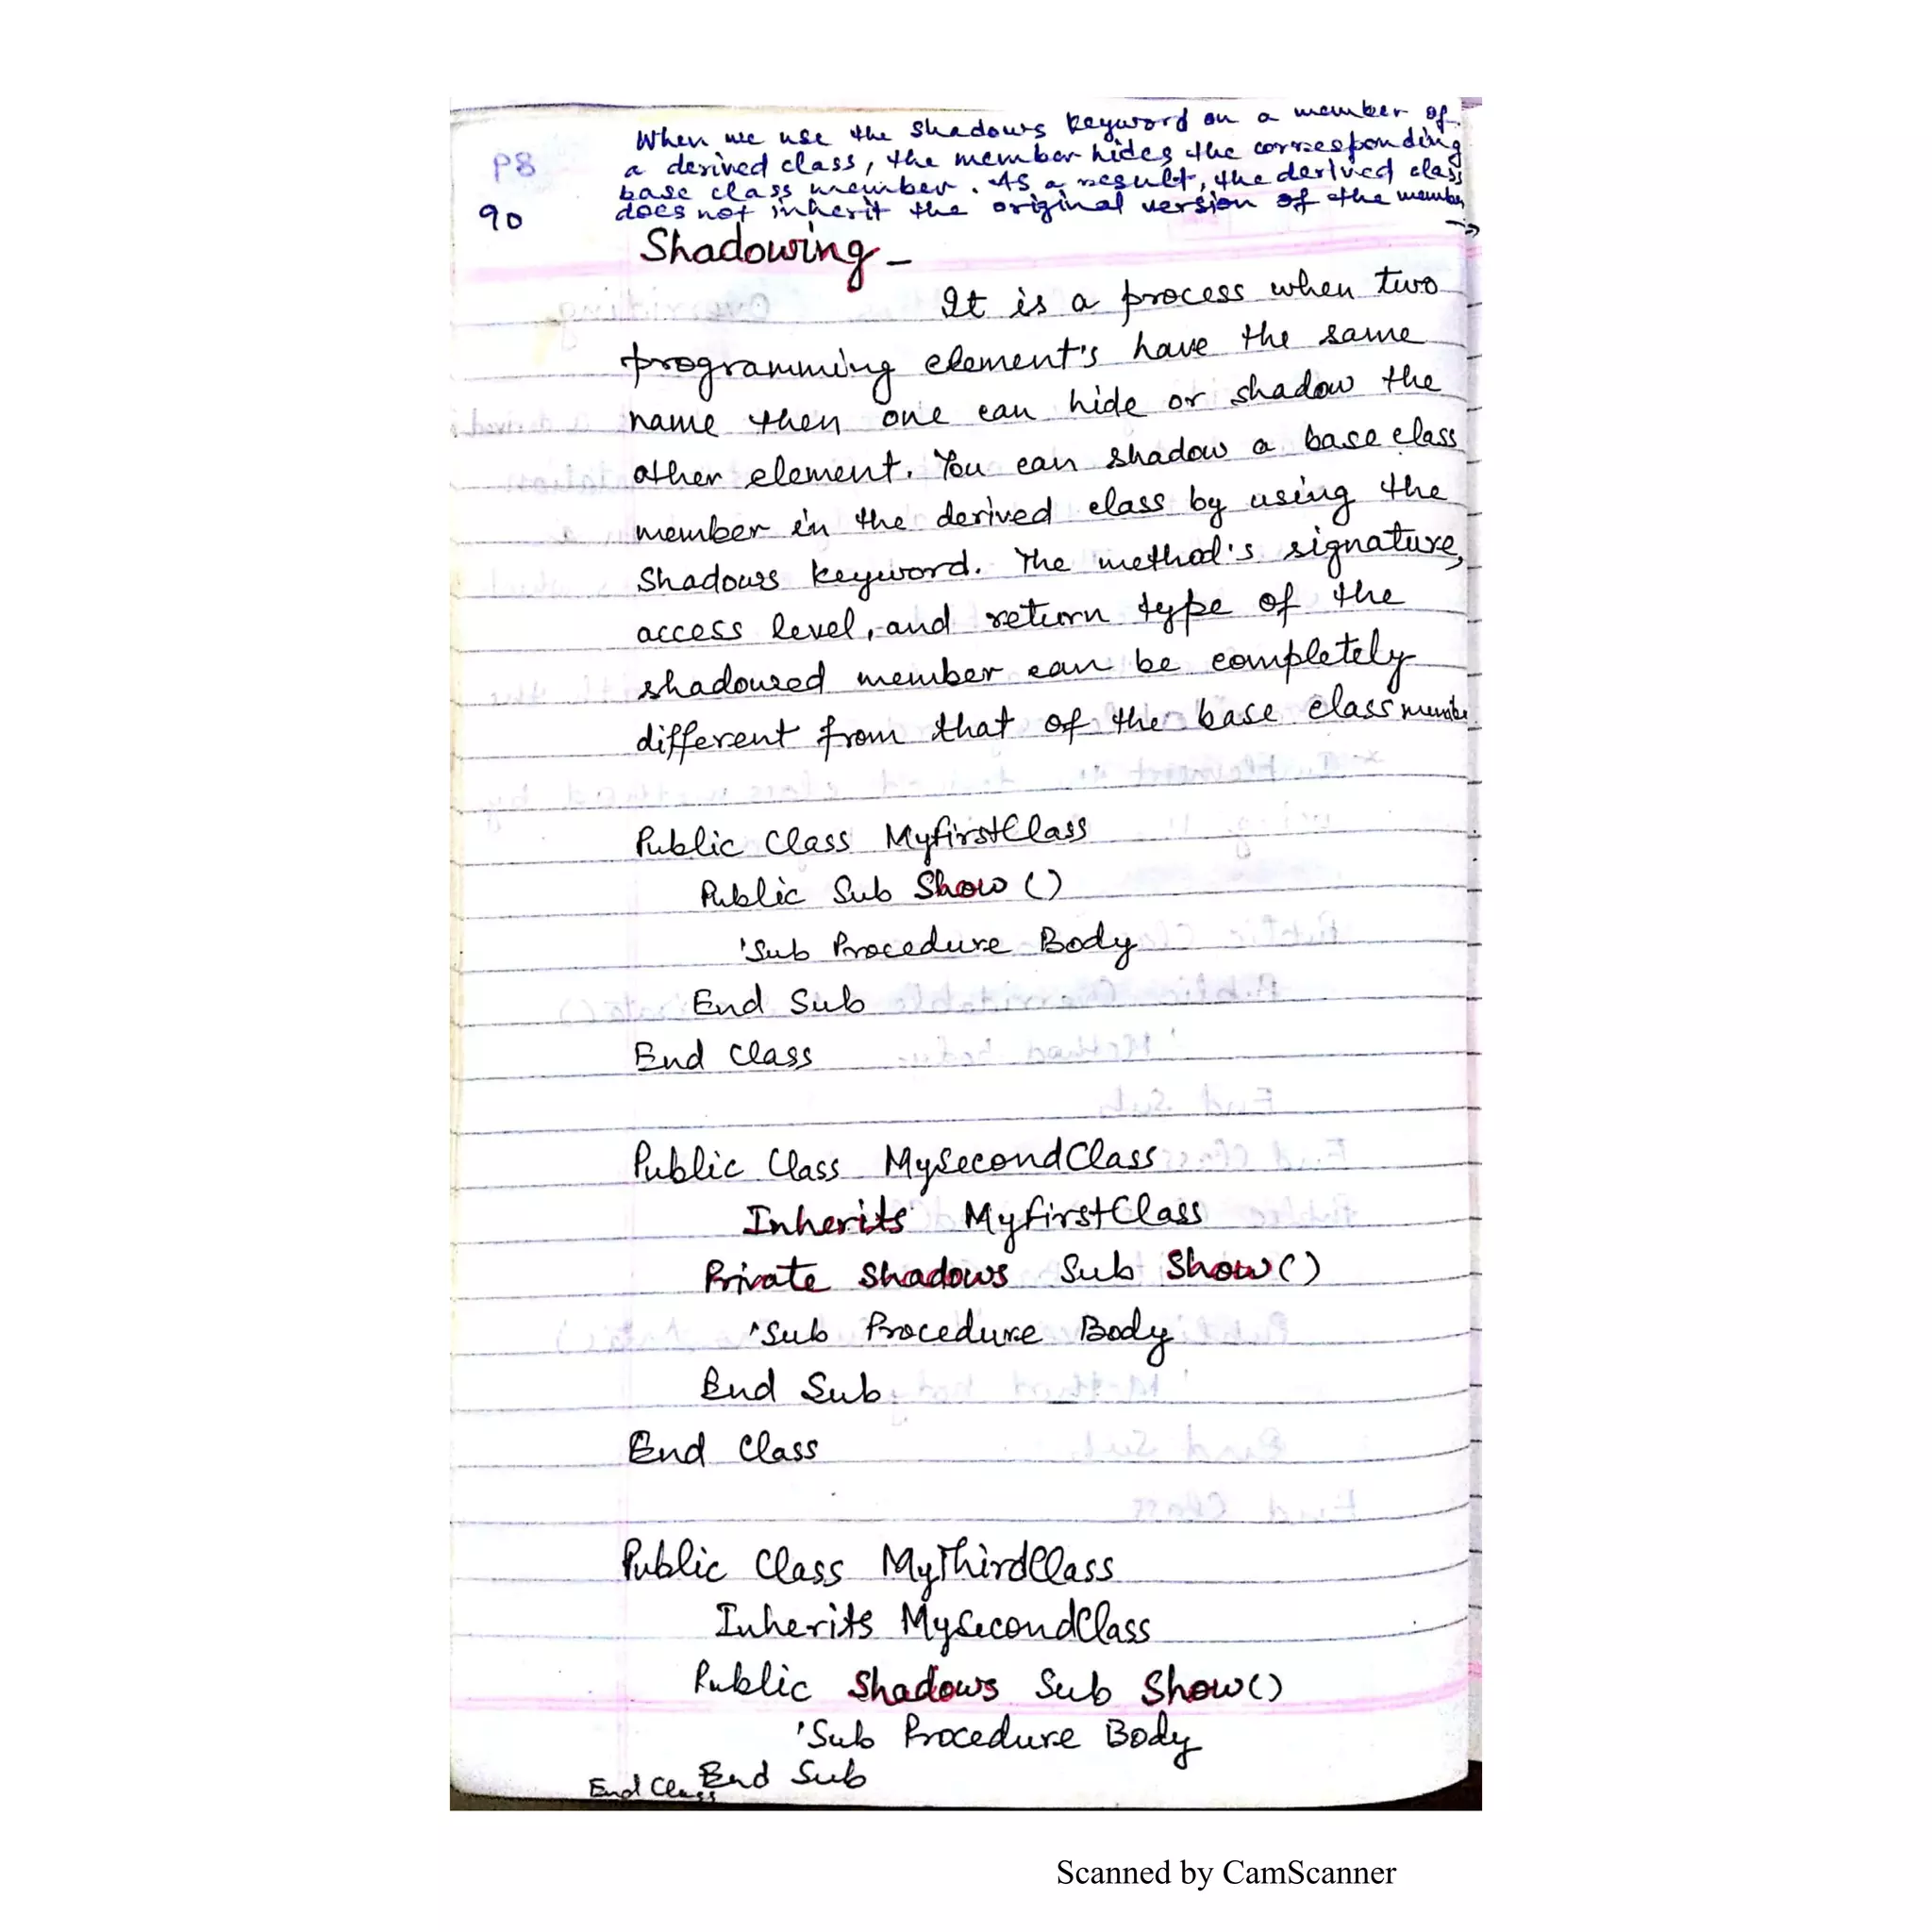 When we use the shadows keyword on a member of
P8
a derived class, the member hides the corresponding
base class member. As a result, the derived class
90
does not inherit the original version of the member
→
Shadowing –
It is a process when two
programming element's have the same
name then one can hide or shadow the
other element. You can shadow a base class
member in the derived class by using the
Shadows keyword. The method's signature,
access level, and return type of the
shadowed member can be completely
different from that of the base class member
Public Class MyfirstClass
Public Sub Show ()
'Sub Procedure Body
End Sub
End Class
Public Class MySecondClass
Inherits MyfirstClass
Private Shadows Sub Show()
'Sub Procedure Body
End Sub
End Class
Public Class MyThirdClass
Inherits MySecondClass
Public Shadows Sub Show()
'Sub Procedure Body
End Sub
End Class
Scanned by CamScanner